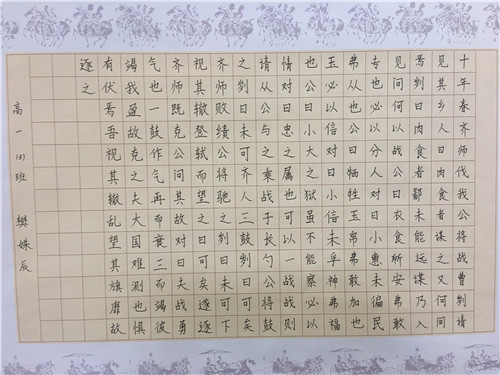 十年春齐师伐我公将战曹刿请
见其乡人曰肉食者谋之又何间
焉刿曰肉食者鄙未能远谋乃入
见问何以战公曰衣食所安弗敢
专也必以分人对曰小惠未偏民
弗从也公曰牺牲玉帛弗敢加也
玉必以信对曰小信未孚神弗福
也公曰小大之狱虽不能察必以
情对曰忠之属也可以一战战则
请从公与之乘战于长勺公将鼓
之刿曰未可齐人三鼓刿曰可矣
齐师败绩公将驰之刿曰未可下
视其辙登轼而望之曰可矣遂逐
齐师既克公问其故对曰夫战勇
气也一鼓作气再而衰三而竭彼
竭我盈故克之夫大国难测也惧
有伏焉吾视其辙乱望其旗靡故
逐之
高一(3)班 樊媒辰